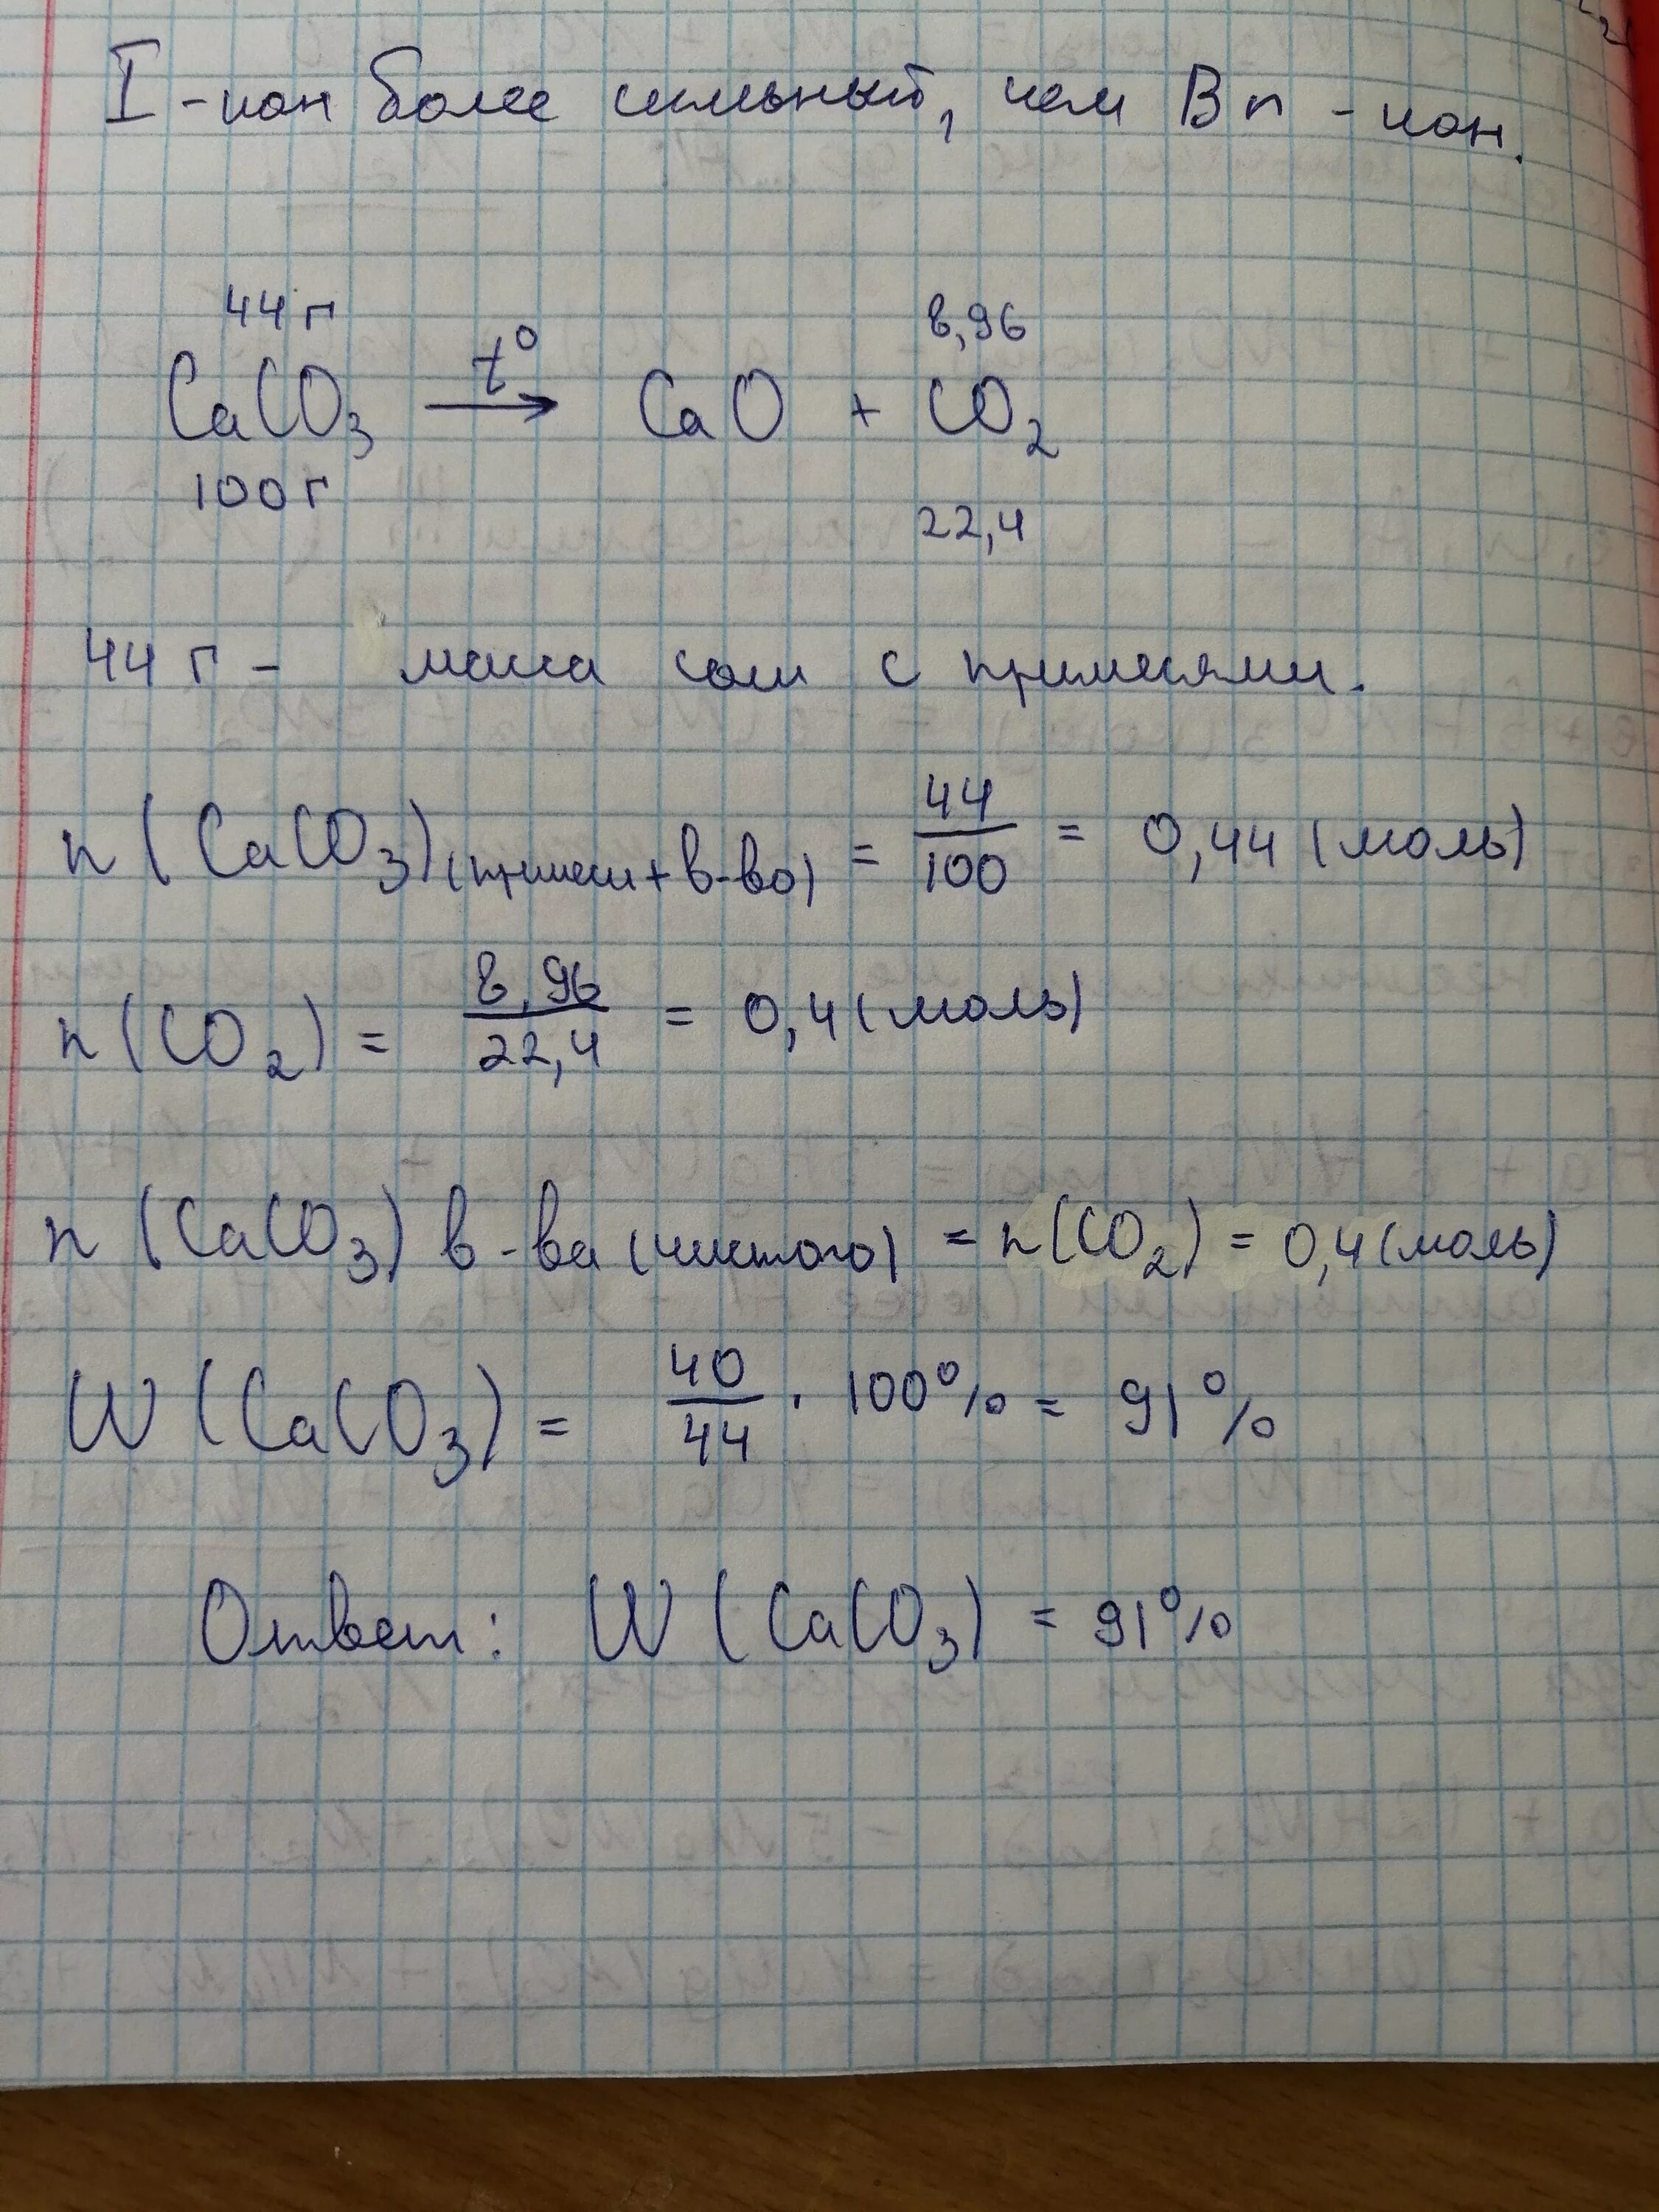 I - ион более сильный, чем Br - ион.
44 г 8,96
CaCO₃ →t° CaO + CO₂
100 г 22,4
44 г - масса соли с примесями.
n (CaCO₃)(примеси + в-во) = 44/100 = 0,44 (моль)
n (CO₂) = 8,96/22,4 = 0,4 (моль)
n (CaCO₃) в-ва (чистого) = n(CO₂) = 0,4 (моль)
W (CaCO₃) = 40/44 · 100% = 91%
Ответ: W (CaCO₃) = 91%